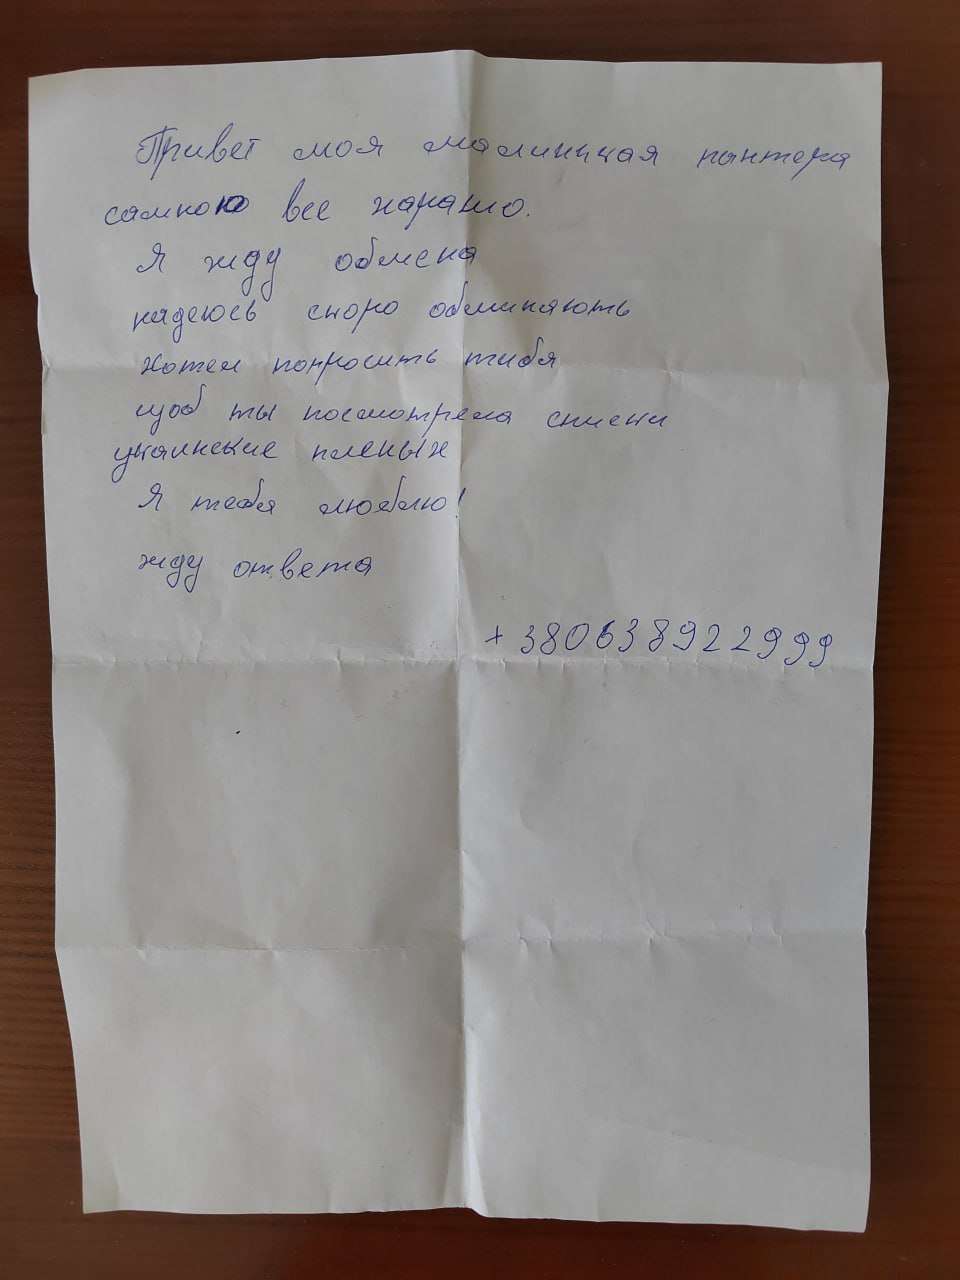 Привет моя малинькая пантера
самною все харашо.
Я жду обмена
надеюсь скоро обминяють
Хотел попросить тибя
щоб ты посмотрела списки
укаинские пленых
Я тебя люблю!
жду ответа
+380638922999